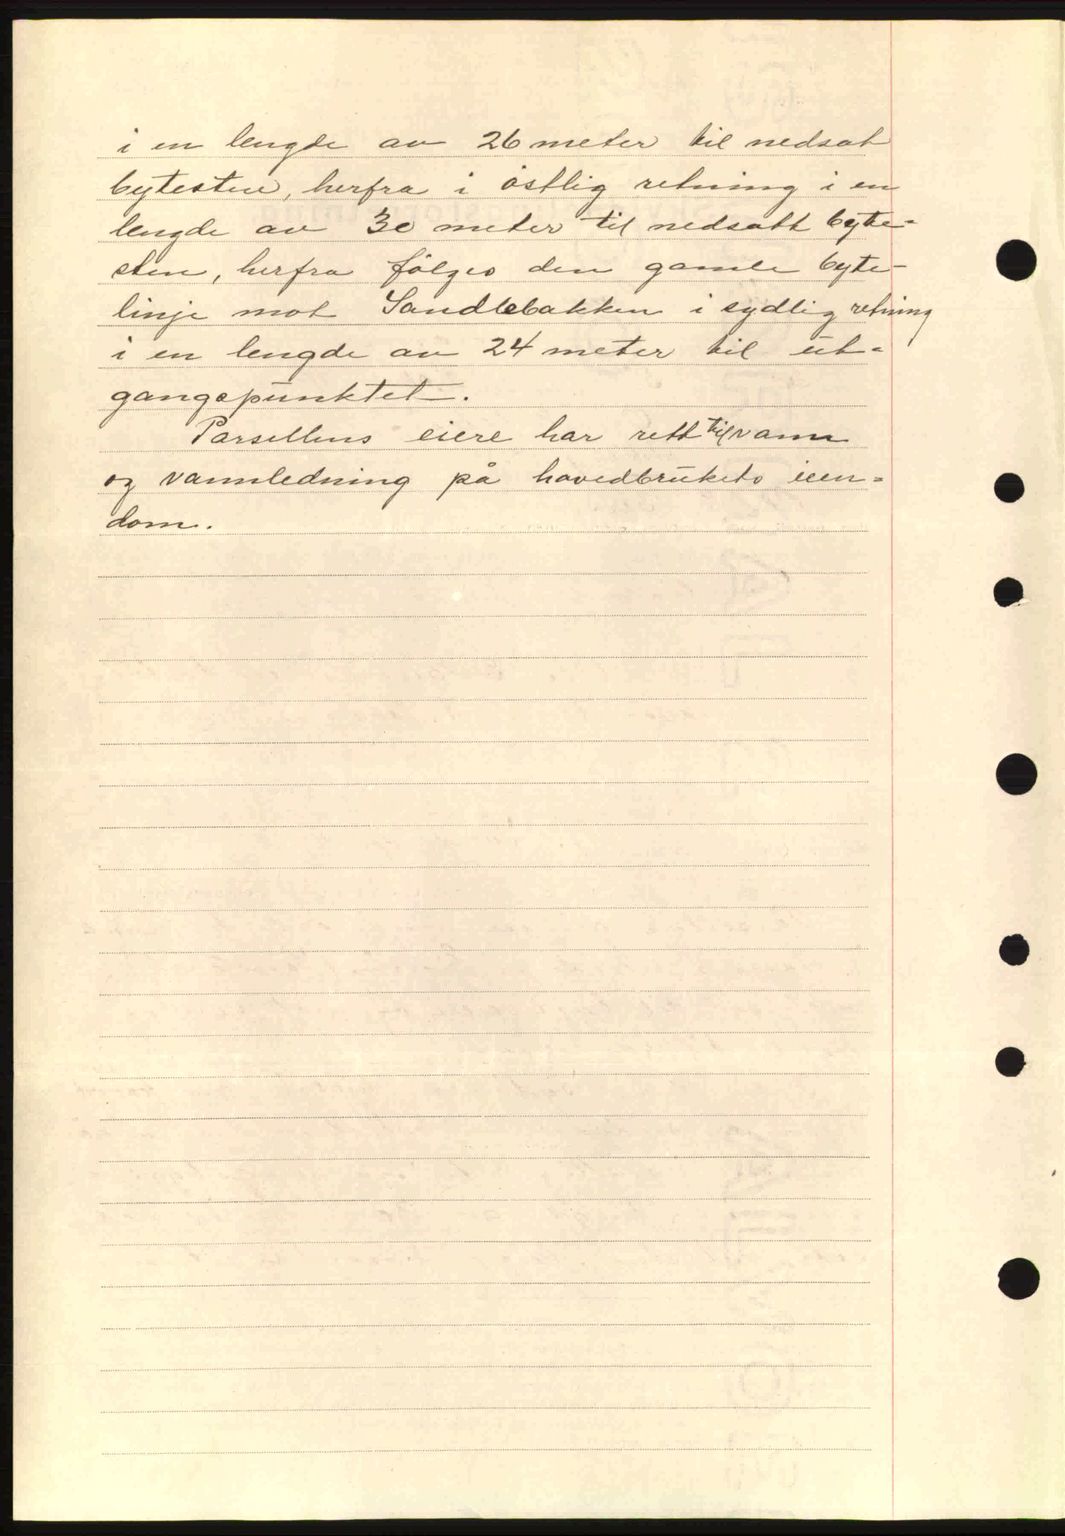 i en lengde av 26 meter til nedsat
bytesten, herfra i östlig retning i en
lengde av 30 meter til nedsatt byte-
sten, herfra fölges den gamle byte-
linje mot Sandlebakken i sydlig retning
i en lengde av 24 meter til ut-
gangspunktet.
Parsellens eiere har rett til vann
og vannledning på hovedbrukets eien-
dom.